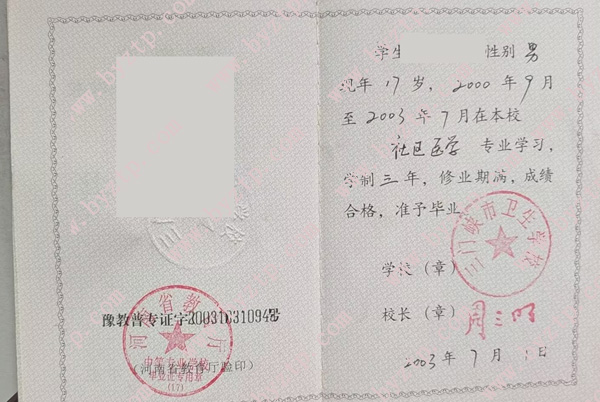 豫教普专证字200310310948号
河南省教育厅
中等专业学校
毕业证专用章
(17)
(河南省教育厅验印)
学生 性别 男
现年 17 岁, 2000 年 9 月
至 2003 年 7 月在本校
社区医学 专业学习,
学制 三 年, 修业期满, 成绩
合格, 准予毕业
三门峡市卫生学校
学校 (章)
校长 (章)
2003 年 7 月 日